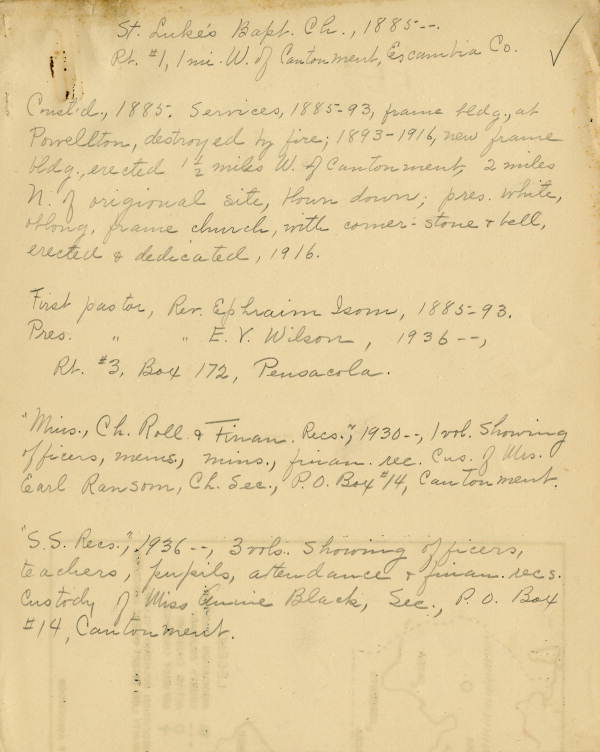 St. Luke's Bapt. Ch., 1885--.
Rt. #1, 1 mi. W. of Cantonment, Escambia Co.
Const'd., 1885. Services, 1885-93, frame bldg., at
Powellton, destroyed by fire; 1893-1916, new frame
bldg., erected 1 1/2 miles W. of Cantonment, 2 miles
N. of origional site, blown down; pres. white,
oblong, frame church, with corner-stone & bell,
erected & dedicated, 1916.
First pastor, Rev. Ephraim Isom, 1885-93.
Pres. " " E. V. Wilson, 1936--,
Rt. #3, Box 172, Pensacola.
"Mins., Ch. Roll & Finan. Recs.", 1930--, 1 vol. Showing
officers, mems., mins., finan. rec. Cus. of Mrs.
Earl Ransom, Ch. Sec., P.O. Box #14, Cantonment.
"S.S. Recs.", 1936--, 3 vols. Showing officers,
teachers, pupils, attendance & finan. recs.
Custody of Miss Black, Sec., P.O. Box
#14, Cantonment.